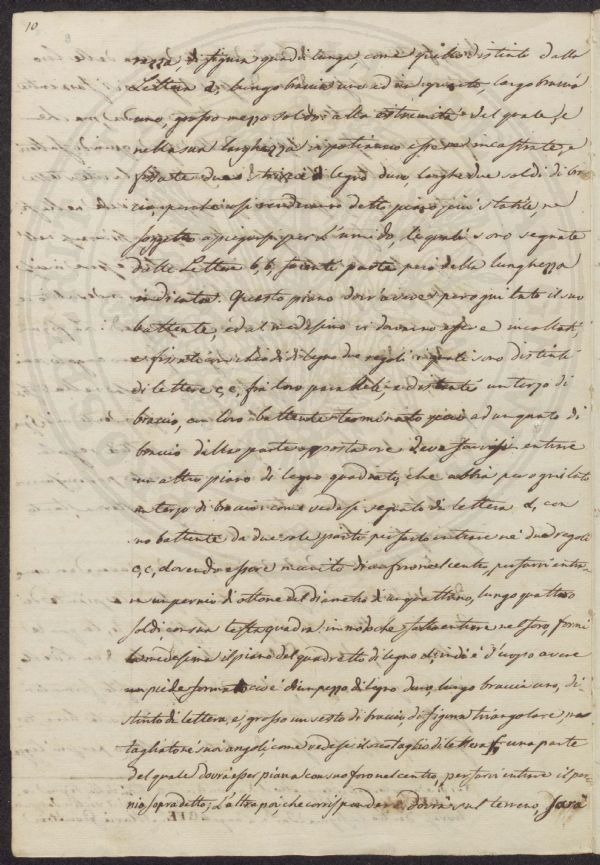 10
rezza, di figura quadrilunga, come quello distinto dalla
Lettera a, lungo braccia uno ed un quarto, largo braccia
uno, grosso mezzo soldo: alla estremità del quale, e
nella sua larghezza si potranno essere incastrate, e
fissate due strisce di legno duro, larghe due soldi di brac-
cio, perché così renderanno detto piano più stabile, ne
soggetto a piegarsi per l'umido, le quali sono segnate
dalle Lettere b, b, facenti parte però della lunghezza
indicata. Questo piano dovrà avere per ogni lato il suo
battente, ed al medesimo vi dovranno essere incollati,
e fissati con chiodi di legno due regoli i quali sono distinti
di lettere c, c, fra loro paralleli, e distanti un terzo di
braccio, con loro battente terminato ad un quarto di
braccio dalla parte opposta ove deve farvisi entrare
un altro piano di legno quadrato, che abbia per ogni lato
un terzo di braccio: come vedasi segnato di lettera d, con
suo battente da due sole parti per farlo entrare nei due regoli
c, c, dovendo essere munito di un foro nel centro, per farvi entra-
re un pernio di ottone del diametro di un quattrino, lungo quattro
soldi con sua testa quadra in modo che fatto entrare nel foro, formi
la medesima il piano del quadretto di legno d; indi è d'uopo avere
un piede formato cioè di un pezzo di legno duro, lungo braccia uno, di-
stinto di lettera e, grosso un sesto di braccio, di figura triangolare
tagliato ne' suoi angoli, come vedesi il suo taglio di lettera f, una parte
del quale dovrà esser piana con suo foro nel centro, per farvi entrare il per-
nio sopradetto; L'altra poi, che corrisponderà dovrà sul terreno, sarà